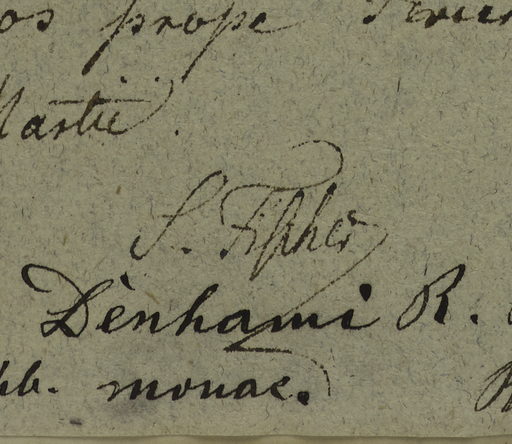 os prope
Martii.
S. Fischer
Denhami R.
bb. monac.